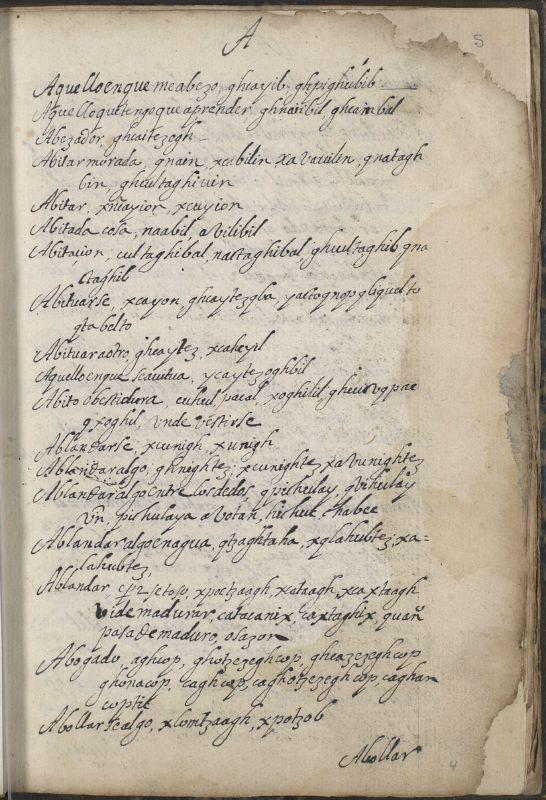 A
5
Aquello enque meabezo, gheayib, ghpighubib
Aquello que tengo que aprender, ghnaibil, gheambal
Abezador, gheaitezegh
Abitar morada, gnain, xcubilin xavaiulin, qnatagh
bin, ghcultaghiuin
Abitar, xnayior, xcuyion
Abitada cosa, naabil avilibil
Abitacion, cultaghibal, nactaghibal, ghcultaghib qna
ctaghil
Abituarse, xcayon, gheaytezqba
gta belto
Abituar aotro, gheaytez, xcaheyil
Aquello enque seavitua, ycaytezoghbil
Abito obestidura cuhul, pacal, xoghilil,
gxoghil, vnde vestirse
Ablandarse, xcunigh, xunigh
Ablandar algo, ghnightez, xcunightez xavunightez
Ablandar algo entre los dedos, gpichulay qvihulay
vn, pichulaya avotan, hichut, chabec
Ablandar algo en agua, qtzaghtaha, xqlahubtez, xa-
lahubtez,
Ablandar, xpoctzaagh, xataagh xcaxtaagh
vide madurar, catacanix, caxtaghix, quan
pasa de maduro, o sazon
Abogado, aghcop, ghotzezeghcop, gheazezeghcop
ghonacop, caghcop, caghotzezeghcop, caghan
coptic
Abollar algo, xlomtzaagh, xpotzob
Abollar
4